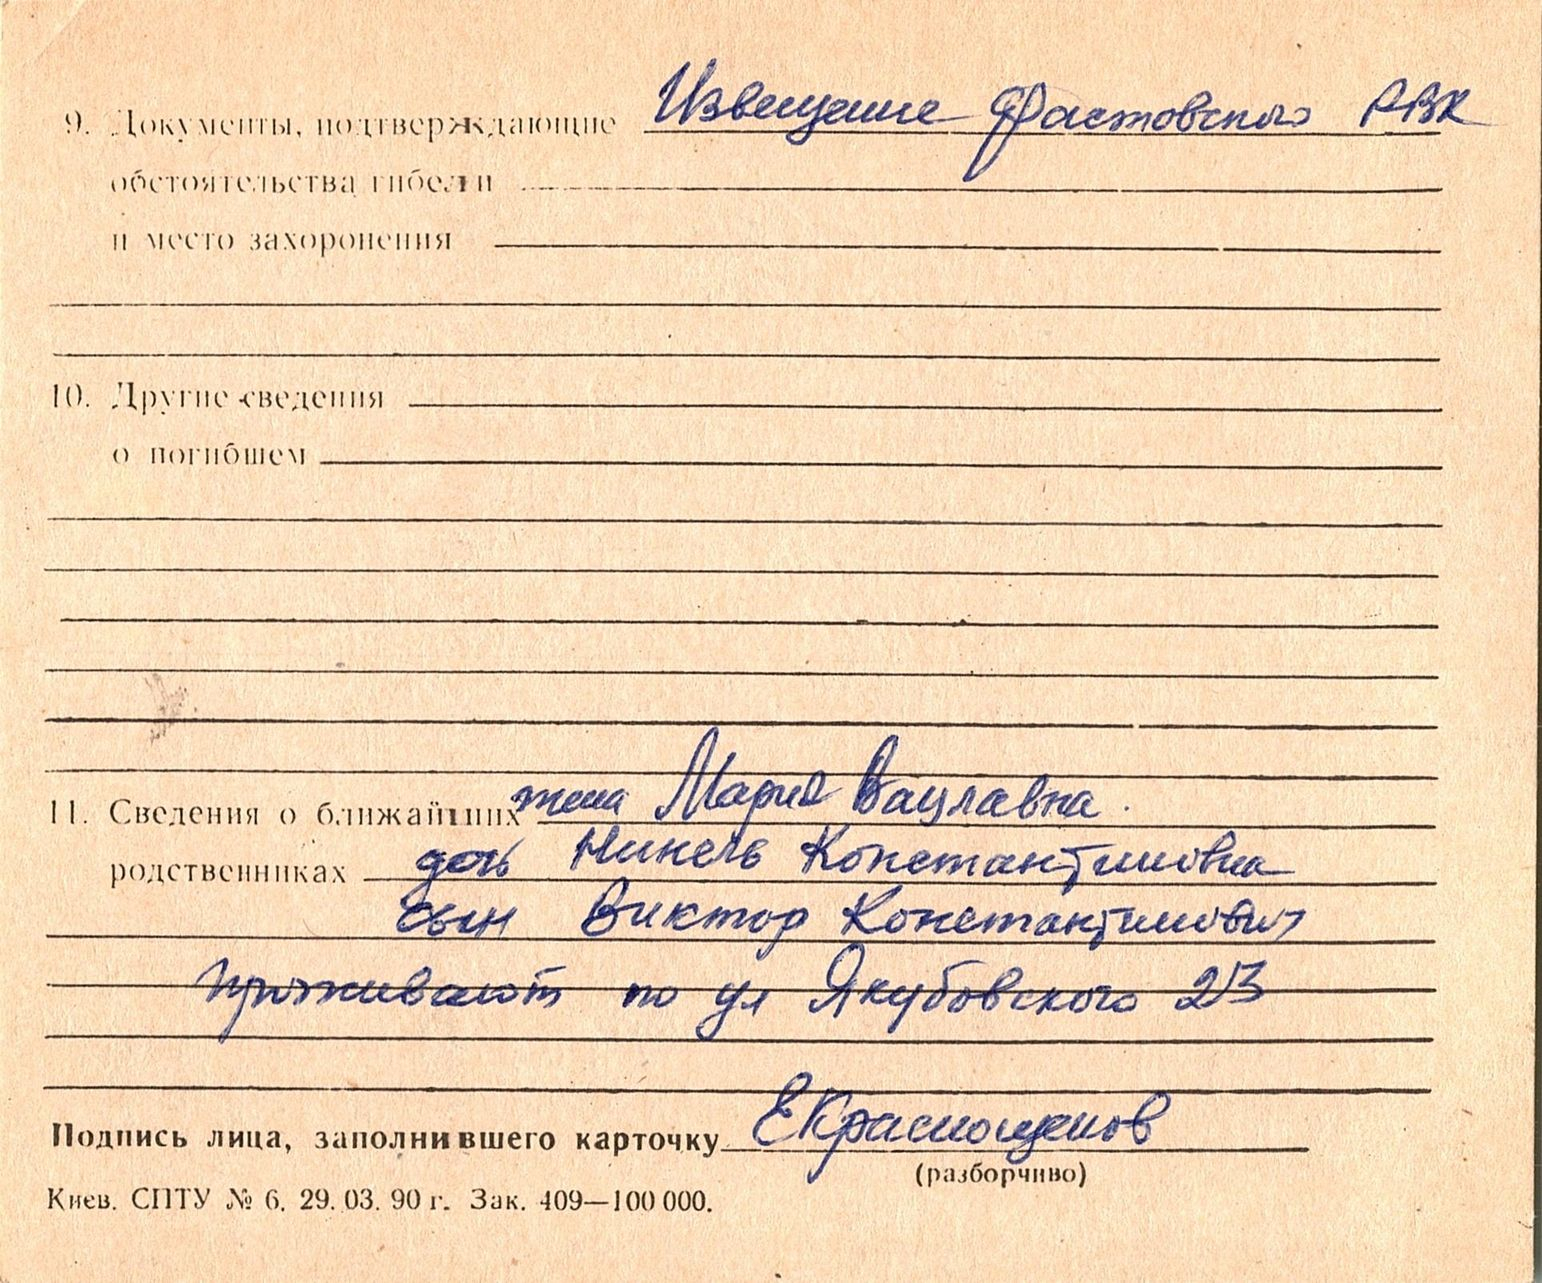 9. Документы, подтверждающие Извещение Фастовского РВК
обстоятельства гибели
и место захоронения
10. Другие сведения
о погибшем
11. Сведения о ближайших жена Мария Вацлавна.
родственниках дочь Нинель Константиновна
сын Виктор Константинович
проживают по ул Якубовского
Подпись лица, заполнившего карточку ЕКраснощеков
(разборчиво)
Киев. СПТУ № 6. 29. 03. 90 г. Зак. 409—100 000.